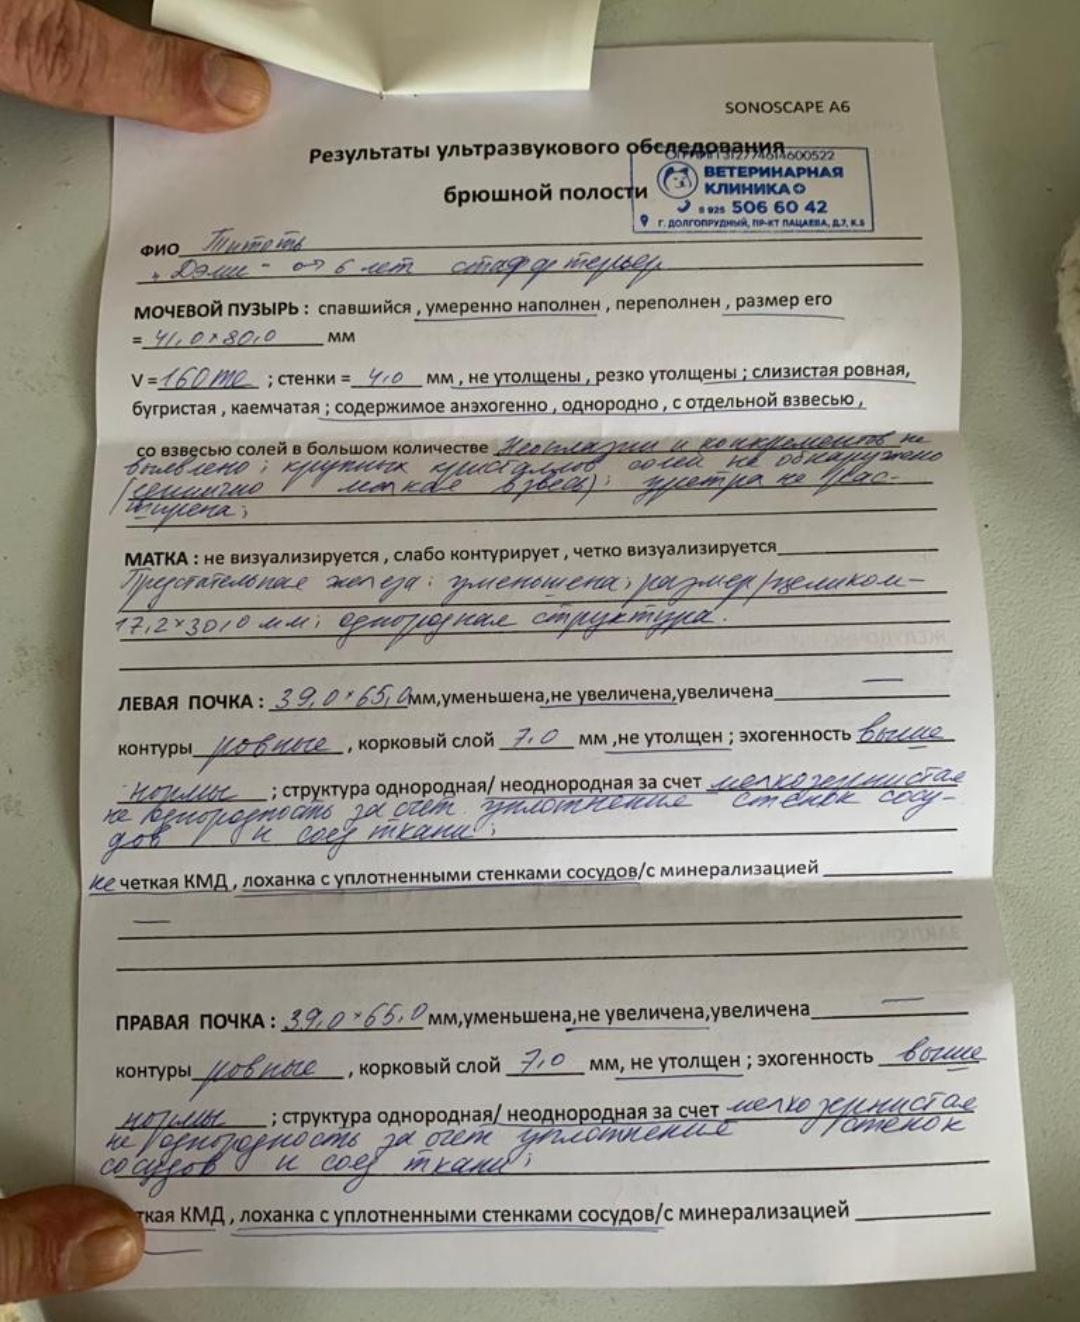 SONOSCAPE A6
Результаты ультразвукового обследования
брюшной полости
ВЕТЕРИНАРНАЯ
КЛИНИКА
8 925 506 60 42
Г. ДОЛГОПРУДНЫЙ, ПР-КТ ПАЦАЕВА, Д.7, К.5
ФИО
"Дэли" - 6 лет стафф терьер
МОЧЕВОЙ ПУЗЫРЬ : спавшийся , умеренно наполнен , переполнен , размер его
= 41,0×80,0 мм
V = 160 ; стенки = 4,0 мм , не утолщены , резко утолщены ; слизистая ровная,
бугристая , каемчатая ; содержимое анэхогенно , однородно , с отдельной взвесью ,
со взвесью солей в большом количестве Неоплазии и конкрементов не
выявлено ; крупных кристаллов солей не обнаружено
(единично мягкая взвесь) ; уретра не рас-
ширена ;
МАТКА : не визуализируется , слабо контурирует , четко визуализируется
Предстательная железа : уменьшена ; размер целиком -
17,2×30,0 мм ; однородная структура.
ЛЕВАЯ ПОЧКА : 39,0×65,0 мм,уменьшена,не увеличена,увеличена —
контуры ровные , корковый слой 7,0 мм ,не утолщен ; эхогенность выше
нормы ; структура однородная/ неоднородная за счет мелкозернистая
неоднородность за счет уплотнение стенок сосу-
дов и соед ткани ;
не четкая КМД , лоханка с уплотненными стенками сосудов/с минерализацией
—
ПРАВАЯ ПОЧКА : 39,0×65,0 мм,уменьшена,не увеличена,увеличена —
контуры ровные , корковый слой 7,0 мм, не утолщен ; эхогенность выше
нормы ; структура однородная/ неоднородная за счет мелкозернистая
неоднородность за счет уплотнение стенок
сосудов и соед ткани ;
ткая КМД , лоханка с уплотненными стенками сосудов/с минерализацией